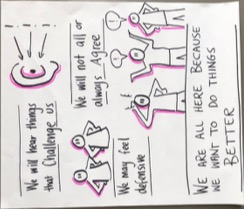 We will hear things
that Challenge us
We will not all or
always Agree
We may feel
defensive
WE ARE ALL HERE BECAUSE
WE WANT TO DO THINGS
BETTER